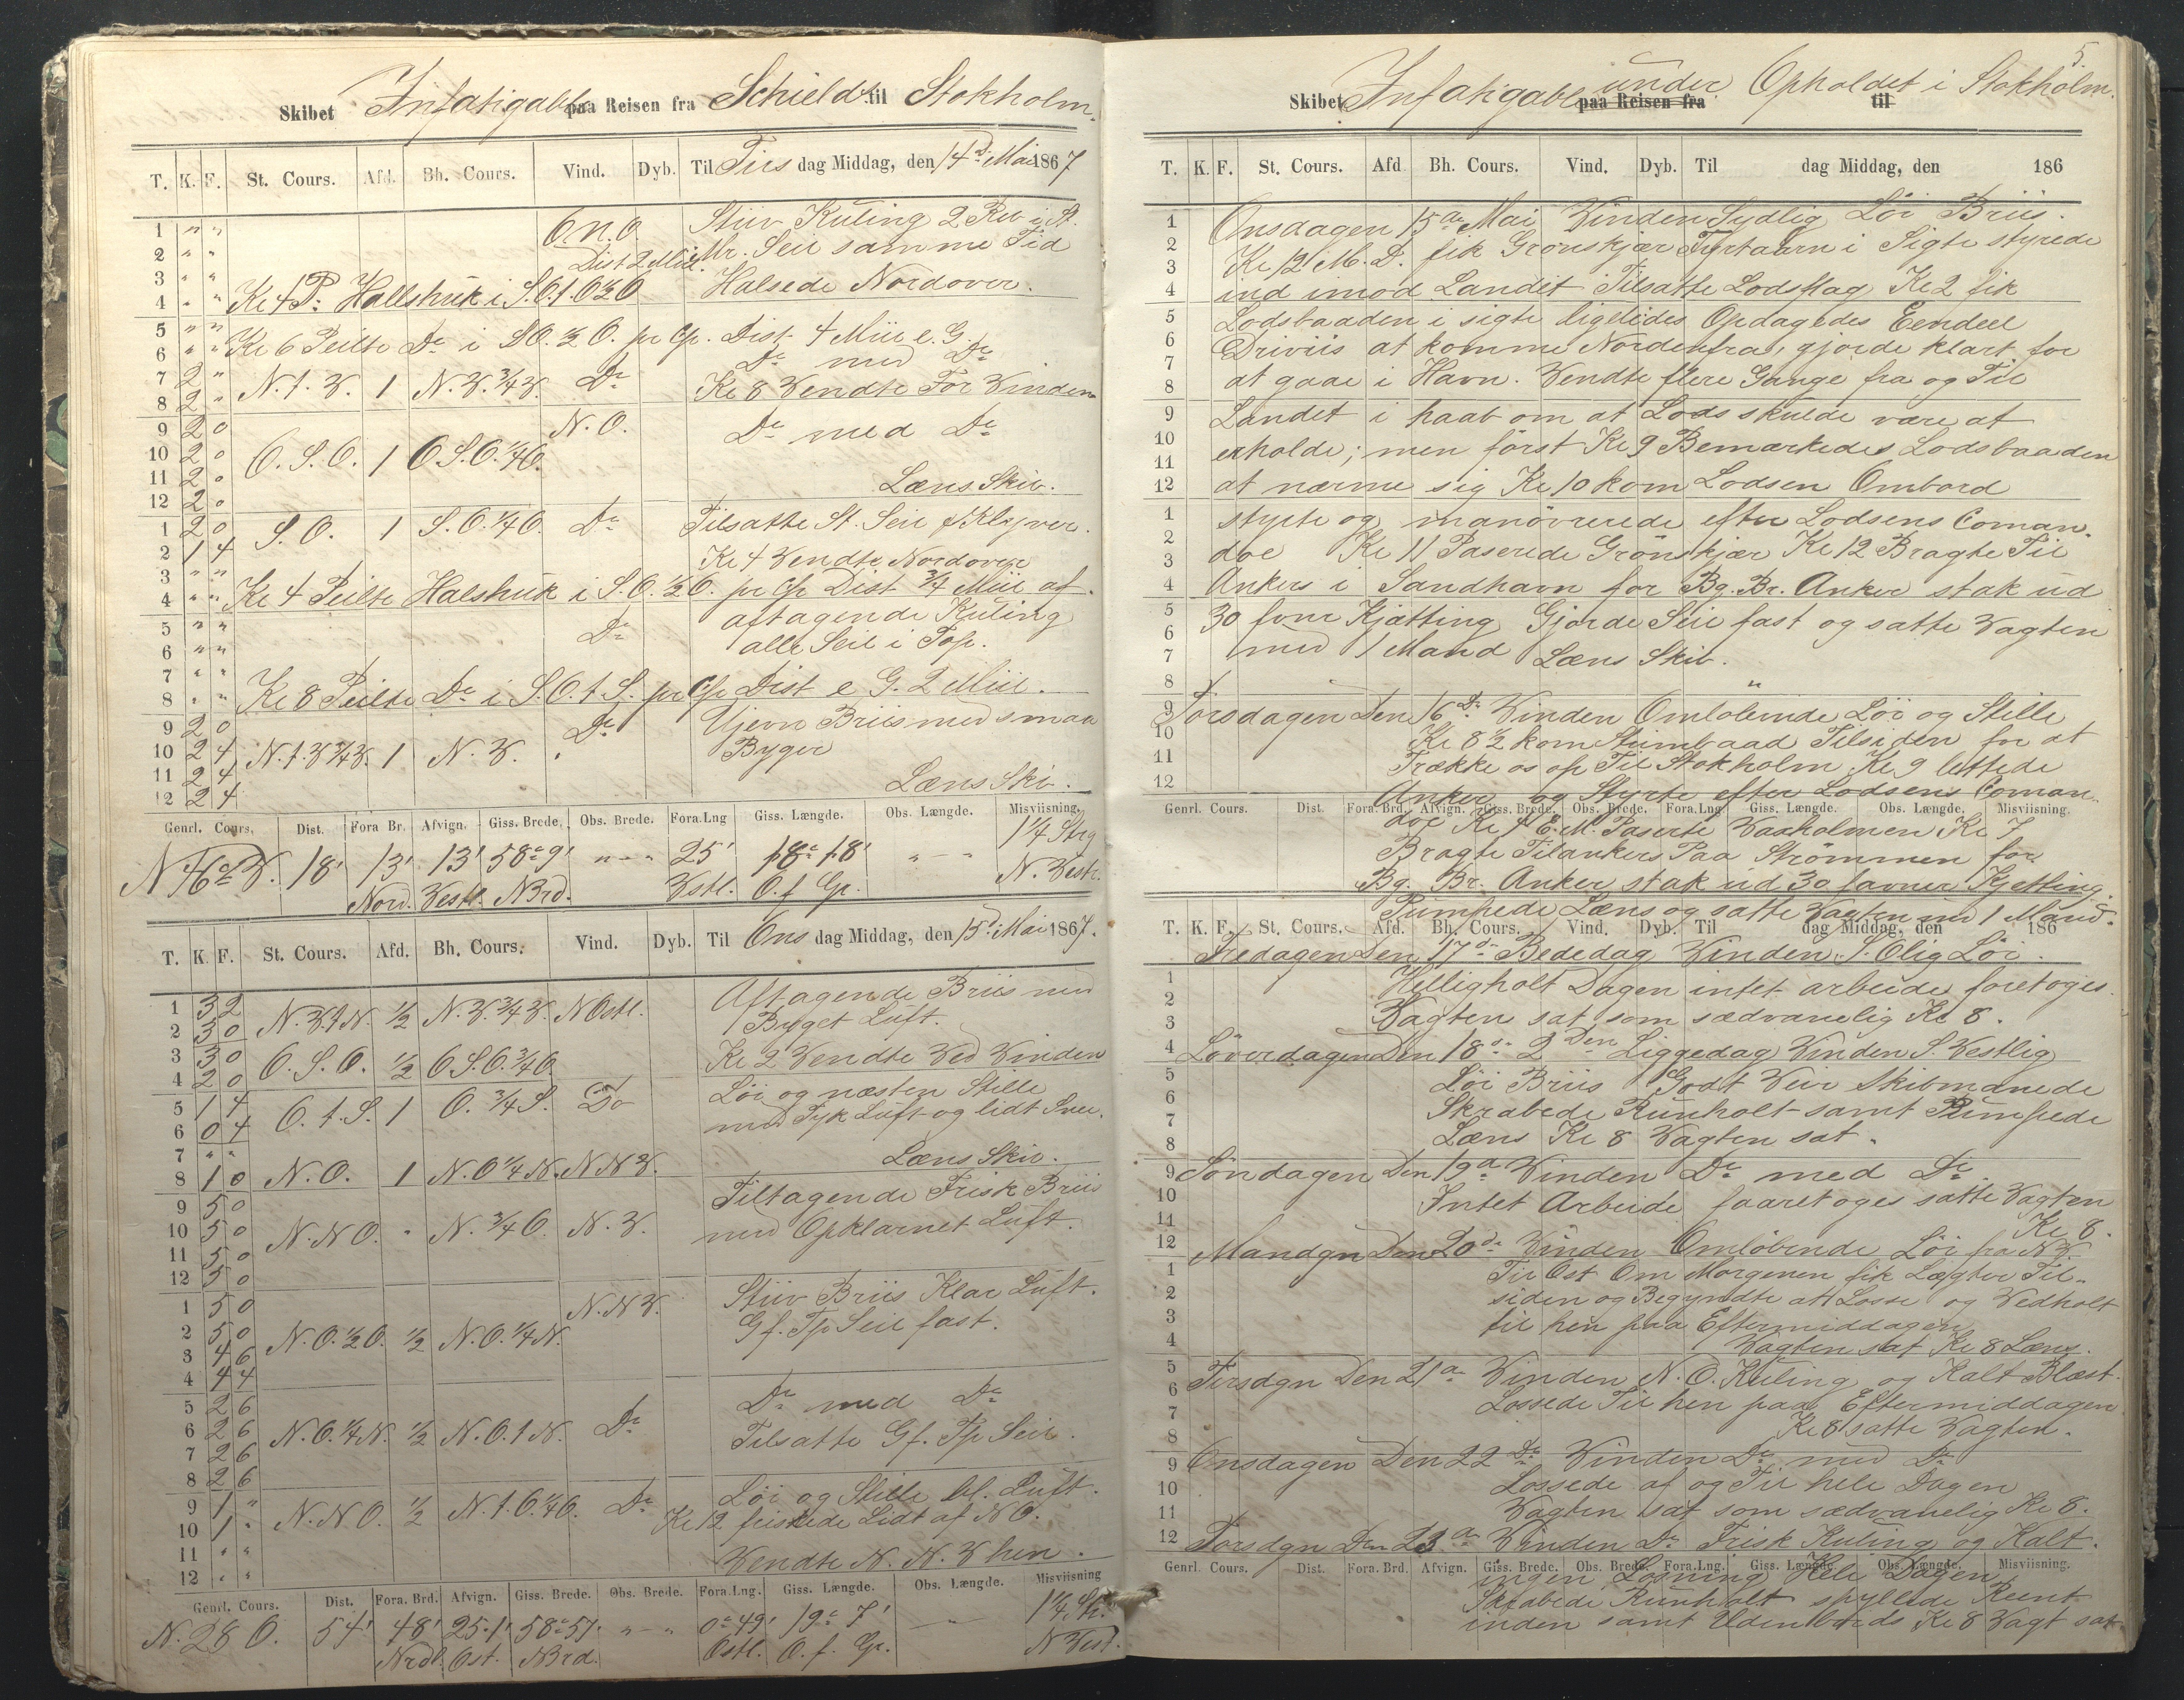 Skibet Infatigable paa Reisen fra Schields til Stokholm.
T. K. F. St. Cours. Afd. Bh. Cours. Vind. Dyb. Til Tirs dag Middag, den 14d. Mai 1867
1 " " O.N.O. Stiiv Kuling 2 Rev i St.
2 " " Dist 2 Miil. Mr. Seil samme Tid
3 " "
4 " " Kl 4 P. Hallshuk i S.O.t.O ½ O Halsede Nordover.
5 " "
6 " " Kl 6 Peilte Do i SO. ½ O. pr Cp. Dist 4 Miil e. G.
Do med Do
7 2 " N.t.V. 1 N.V. ¾ V. Do Kl 8 Vendte For Vinden
8 2 "
9 2 0 N.O.
10 2 0 O.S.O. 1 O.S.O. ¼ O. Do med Do
11 2 0
12 2 0 Læns Skib.
1 2 0 S.O. 1 S.O. ¼ O. Do Tilsatte St. Seil & Klyver.
2 1 4
3 " " Kl 4 Vendte Nordover
4 " " Kl 4 Peilte Halshuk i S.O. ½ O. pr Cp Dist ¾ Miil af.
5 " " Do aftagende Kuling
6 " " alle Seil i Top.
7 " "
8 " " Kl 8 Peilte Do i S.O.t.S. pr Cp Dist e G. 2 Miil.
9 2 0 Do Ujevn Briis med smaa
10 2 4 N.t.V ¾ V. 1 N.V. Byger
11 2 4
12 2 4 Læns Skib.
Genrl. Cours. Dist. Fora Br. Afvign. Giss. Brede. Obs. Brede. Fora.Lng Giss. Længde. Obs. Længde. Misviisning.
N 46° V. 18' 13' 13' 58°9' " - " 25' 18° 18' " - 1¼ Strg
Nord. Vestl. NBrd. Vstl. O. f Gr. N. Vestl.
T. K. F. St. Cours. Afd. Bh. Cours. Vind. Dyb. Til Ons dag Middag, den 15d. Mai 1867.
1 3 2 Aftagende Briis med
2 3 0 N.V.t N. ½ N.V. ¾ V. NOstl. Byget Luft.
3 3 0 O.S.O. ½ O.S.O. ¾ O Kl 2 Vendte Ved Vinden
4 2 0 Løi og næsten Stille
5 1 4 O.t.S. 1 O. ¾ S. Do med Tyk Luft og lidt Snee.
6 0 4
7 " " Læns Skib.
8 1 0 N.O. 1 N.O ¼ N. NNV.
9 5 0 Tiltagende Frisk Briis
10 5 0 N.NO. " N. ¾ O. N.V. med Opklarnet Luft.
11 5 0
12 5 0
1 5 0 N.NV. Stiiv Briis Klar Luft.
2 5 0 N.O. ½ O. ½ N.O. ¼ N. Gf. Tp Seil fast.
3 4 6
4 4 4
5 2 6 Do med Do
6 2 6 N.O. ¼ N. ½ N.O.t N. Do Tilsatte Gf. Tp Seil.
7 2 6
8 2 6
9 1 " Løi og Stille kl. Luft.
10 1 " N.NO. ½ N.t.O. ¼ O. Do Kl 12 friskede Lidt af NO.
11 " "
12 " " Vendte N.N.V hen.
Genrl. Cours. Dist. Fora. Brd. Afvign. Giss. Brede. Obs. Brede. Fora.Lng. Giss. Længde. Obs. Længde. Misviisning
N. 28 O. 54' 48' 25.1' 58°57. " - " 0°49' 19° 7' - 1¼ St.
Nrdl. Ost. NBrd. Ostl. O. f. Gr. N Vestl.
5.
Skibet Infatigable paa Reisen fra under Opholdet i Stokholm. til
T. K. F. St. Cours. Afd Bh. Cours. Vind. Dyb. Til dag Middag, den 186
Onsdagen 15de Mai Vinden Sydlig Løi Briis.
Kl 12 M.D. fik Grønskjær Fyrtaarn i Sigte styrede
ind imod Landet Tilsatte Lodsflag Kl 2 fik
Lodsbaaden i sigte ligeledes Opdagedes Eendeel
Driviis at komme Nordenfra, gjorde klart for
at gaae i Havn. Vendte flere Gange fra og Til
Landet i haab om at Lods skulde være at
erholde; men først Kl 9 Bemærkedes Lodsbaaden
at nærme sig Kl 10 kom Lodsen Ombord
styrte og manøvrerede efter Lodsens Coman-
doe Kl 11 Paserede Grønskjær Kl 12 Bragte Til
Ankers i Sandhavn for Bg. Br. Anker stak ud
30 fvnr Kjætting Gjorde Seil fast og satte Vagten
med 1 Mand Læns Skib.
"
Torsdagen Den 16de Vinden Omløbende Løi og Stille
Kl 8½ kom Stimbaad Tilsiden for at
Trække os op Til Stokholm Kl 9 lettede
Anker og Styrte efter Lodsens Coman-
Genrl. Cours. Dist. Fora. Brd. Afvign. Giss. Brede. Obs. Brede. Fora.Lng. Giss. Længde. Obs. Længde. Misviisning.
doe Kl 4 E.M. Paserte Vaxholmen Kl 7
Bragte Tilankers Paa Strømmen for
Bg. Br. Anker stak ud 30 favner Kjetting.
Pumpede Læns og satte Vagten med 1 Mand.
T. K. F. St. Cours. Afd. Bh. Cours. Vind. Dyb. Til dag Middag, den 186
Fredagen Den 17de Bededag Vinden S.Olig Løi.
Helligholt Dagen intet arbeide foretoges.
Vagten sat som sædvanelig Kl 8.
Løverdagen Den 18de 2den Liggedag Vinden S. Vestlig
Løi Briis Godt Veir Skibmænede
Skrabede Runholt samt Pumpede
Læns Kl 8 Vagten sat.
Søndagen Den 19de Vinden Do med Do
Intet Arbeide faaretoges satte Vagten
Kl 8.
Mandgn Den 20de Vinden Omløbende Løi fra NV.
Til Ost Om Morgenen fik Lægter Til-
siden og Begyndte att Losse og Vedholt
til hen paa Eftermiddagen
Vagten sat Kl 8 Læns.
Tirsdgn Den 21de Vinden N.O. Kuling og Kalt Blæst.
Lossede Til hen paa Eftermiddagen
Kl 8 satte Vagten.
Onsdagen Den 22de Vinden Do med Do
Lossede af og Til hele Dagen
Vagten sat som sædvanelig Kl 8.
Torsdgn Den 23de Vinden Do Frisk Kuling og Kalt.
Genrl. Cours. Dist. Fora. Brd. Afvign. Giss. Brede. Obs. Brede. Fora.Lng. Giss. Længde. Obs. Længde. Misviisning.
ingen Losning Hele Dagen
Skrabede Runholt spyllede Reent
inden samt Udenbords Kl 8 Vagt sat